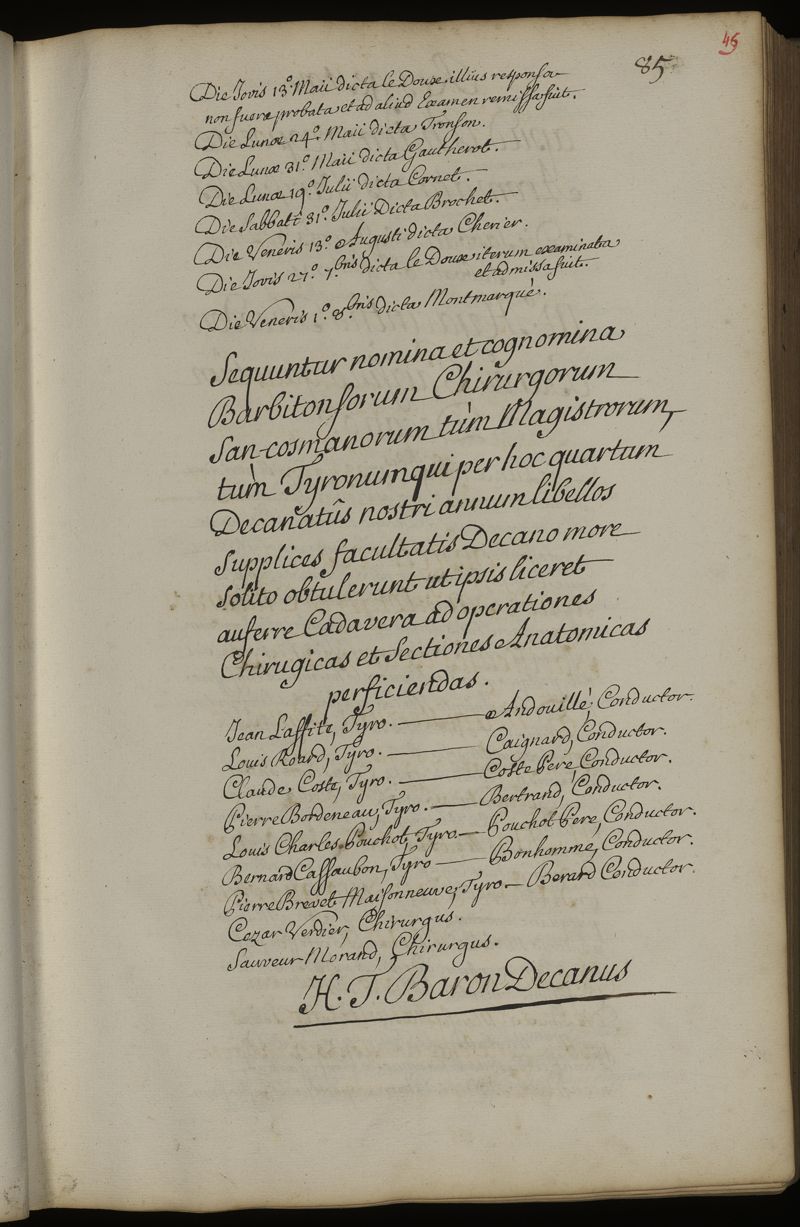 45
85
Die Jovis 13.º Maii dicta le Doux illius responsa
non fuere probata et ad aliud Examen remissa fuit.
Die Lunæ 24.º Maii dicta Tronson.
Die Lunæ 31.º Maii dicta Gautherot.
Die Lunæ 19.º Julii dicta Cornet.
Die Sabbati 31.º Julii Dicta Brochet.
Die Veneris 13.º Augusti dicta Cherier.
Die Jovis 27.º 7.bris dicta le Doux iterum examinata
et admissa fuit.
Die Veneris 1.º 8.bris dicta Montmarqué.
Sequuntur nomina et cognomina
Barbitonsorum Chirurgorum
San-cosmanorum tùm Magistrorum,
tùm Tyronum qui per hoc quartum
Decanatûs nostri annum libellos
supplices facultatis Decano more
solito obtulerunt ut ipsis liceret
auferre Cadavera ad operationes
Chirugicas et Sectiones Anatomicas
perficiendas.
Jean Laffite, Tyro. — Andouillé, Conductor.
Louis Roard, Tyro. — Caignard, Conductor.
Claude Coste, Tyro. — Coste Pere, Conductor.
Pierre Bordeneau, Tyro. — Bertrand, Conductor.
Louis Charles Pouchot, Tyro — Pouchot Pere, Conductor.
Bernard Cassaubon, Tyro — Bonhomme, Conductor.
Pierre Brevet Maisonneuve, Tyro — Berard Conductor.
Cezar Verdier, Chirurgus.
Sauveur Morand, Chirurgus.
H. T. Baron Decanus